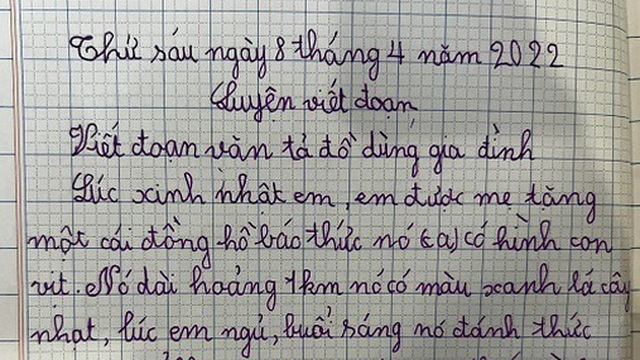 Thứ sáu ngày 8 tháng 4 năm 2022
Luyện viết đoạn
Viết đoạn văn tả đồ dùng gia đình
Lúc xinh nhật em, em được mẹ tặng
một cái đồng hồ báo thức nó (a) có hình con
vịt. Nó dài hoảng 1km nó có màu xanh lá cây
nhạt, lúc em ngủ, buổi sáng nó đánh thức